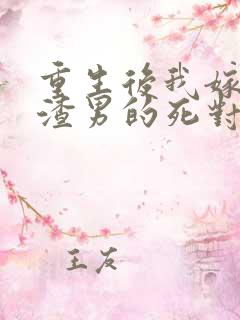 重生後我嫁
渣男的死對
王友